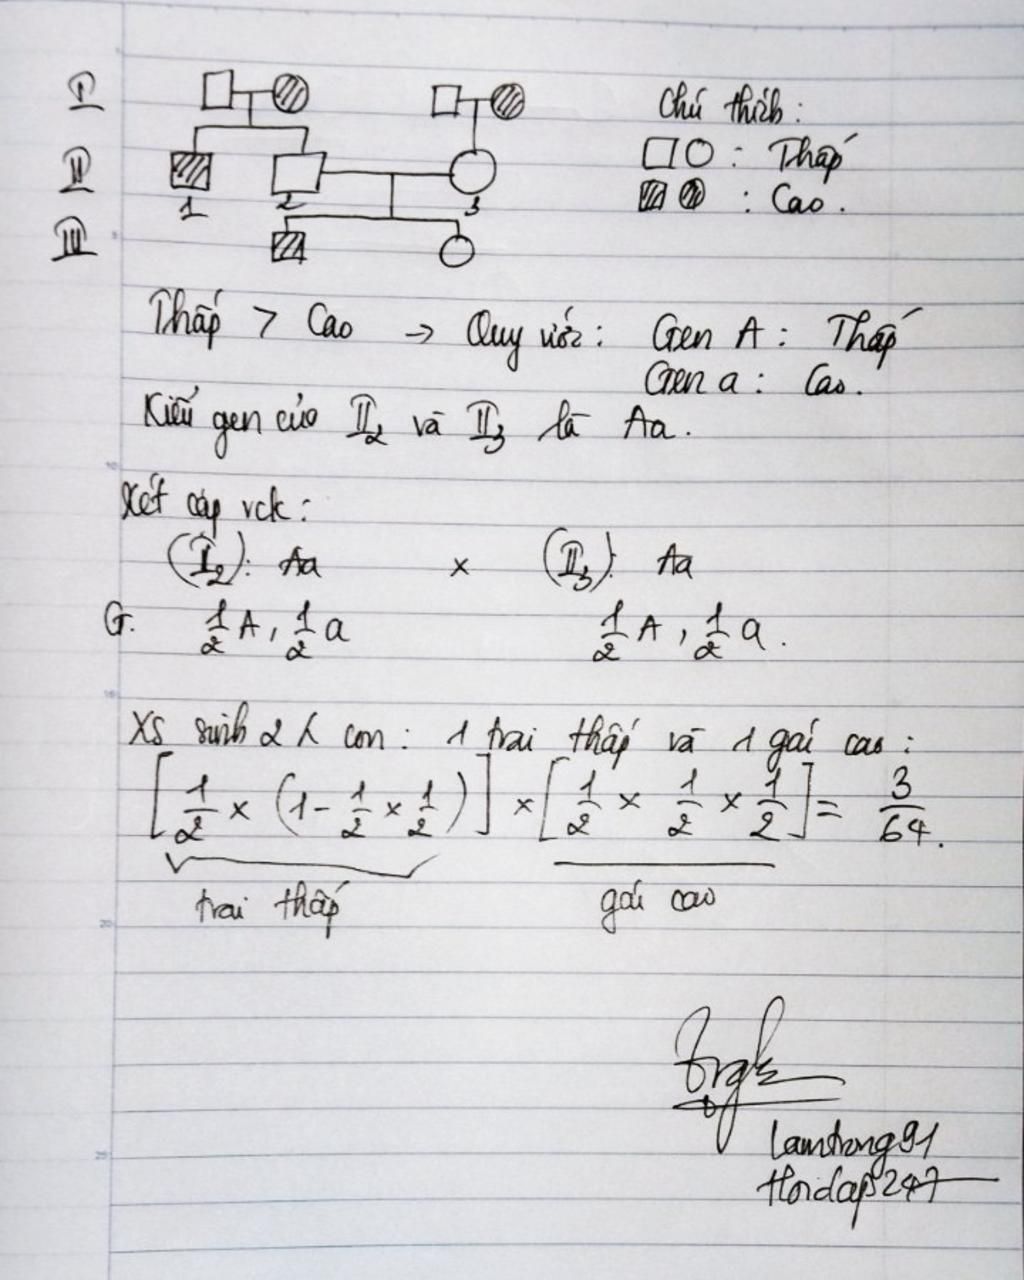 I
Chú thích:
II
□ ○ : Thấp
1 2 3
: Cao.
III
Thấp > Cao → Quy ước: Gen A: Thấp
Gen a: Cao.
Kiểu gen của II2 và II3 là Aa.
Xét cặp vck:
(I2): Aa × (II3): Aa
G. 1/2 A, 1/2 a 1/2 A, 1/2 a.
XS sinh 2 con: 1 trai thấp và 1 gái cao:
[1/2 × (1 - 1/2 × 1/2)] × [1/2 × 1/2 × 1/2] = 3/64.
trai thấp gái cao
lamtrong91
Hoidap247